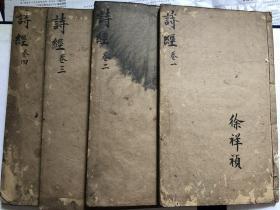 詩經 卷一
徐祥禎
詩經 卷二
詩經 卷三
詩經 卷四